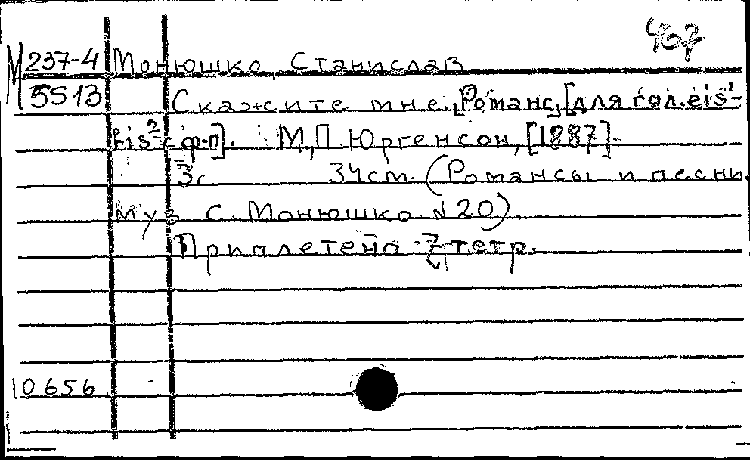 467
М 237-4 Монюшко, Станислав
5513 Скажите мне. Романс, [для гол. eis¹-
fis² с ф.п]. М., П. Юргенсон, [1887].
3 с. 34 cm. (Романсы и песни.
Муз. С. Монюшко №20)
Приплетено 7 тетр.
10656